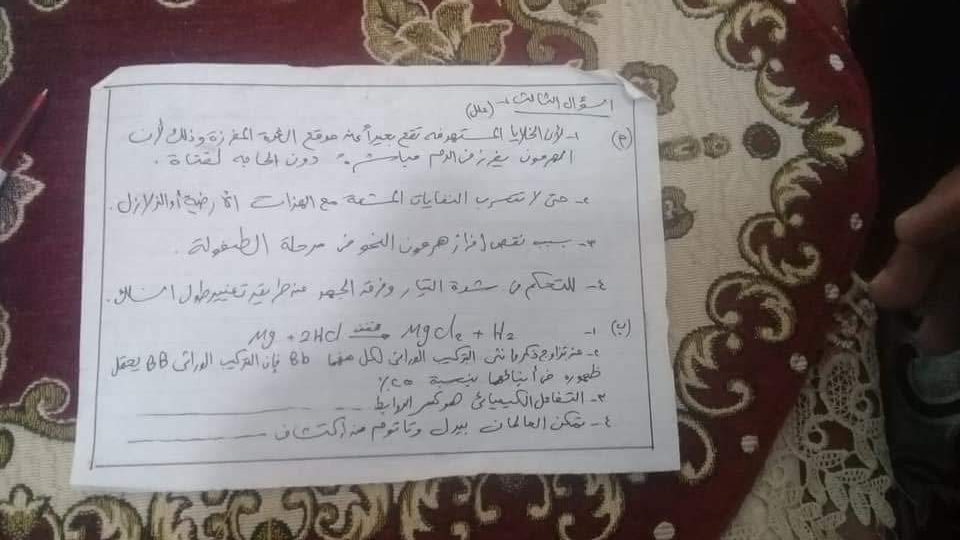 السؤال الثالث :- (علل)
(أ) ١- لأن الخلايا المستهدفة تقع بعيداً عن موقع الغدة المفرزة وذلك لأن
الهرمون يفرز في الدم مباشرة دون الحاجه لقناة .
٢- حتى لا تتسرب النفايات المشعة مع الهزات الأرضية أو الزلازل .
٣- بسبب نقص إفراز هرمون النمو في مرحلة الطفولة .
٤- للتحكم في شدة التيار وفرق الجهد عن طريق تغيير طول السلك .
(ب) ١- Mg + 2HCl مخفف → MgCl2 + H2
٢- عند تزاوج ذكر وأنثى التركيب الوراثى لكل منهما Bb فإن التركيب الوراثى BB يحتمل
ظهوره في أبنائهما بنسبة ٢٥٪
٣- التفاعل الكيميائى هو كسر الروابط
٤- تمكن العالمان بيدل وتاتوم من اكتشاف